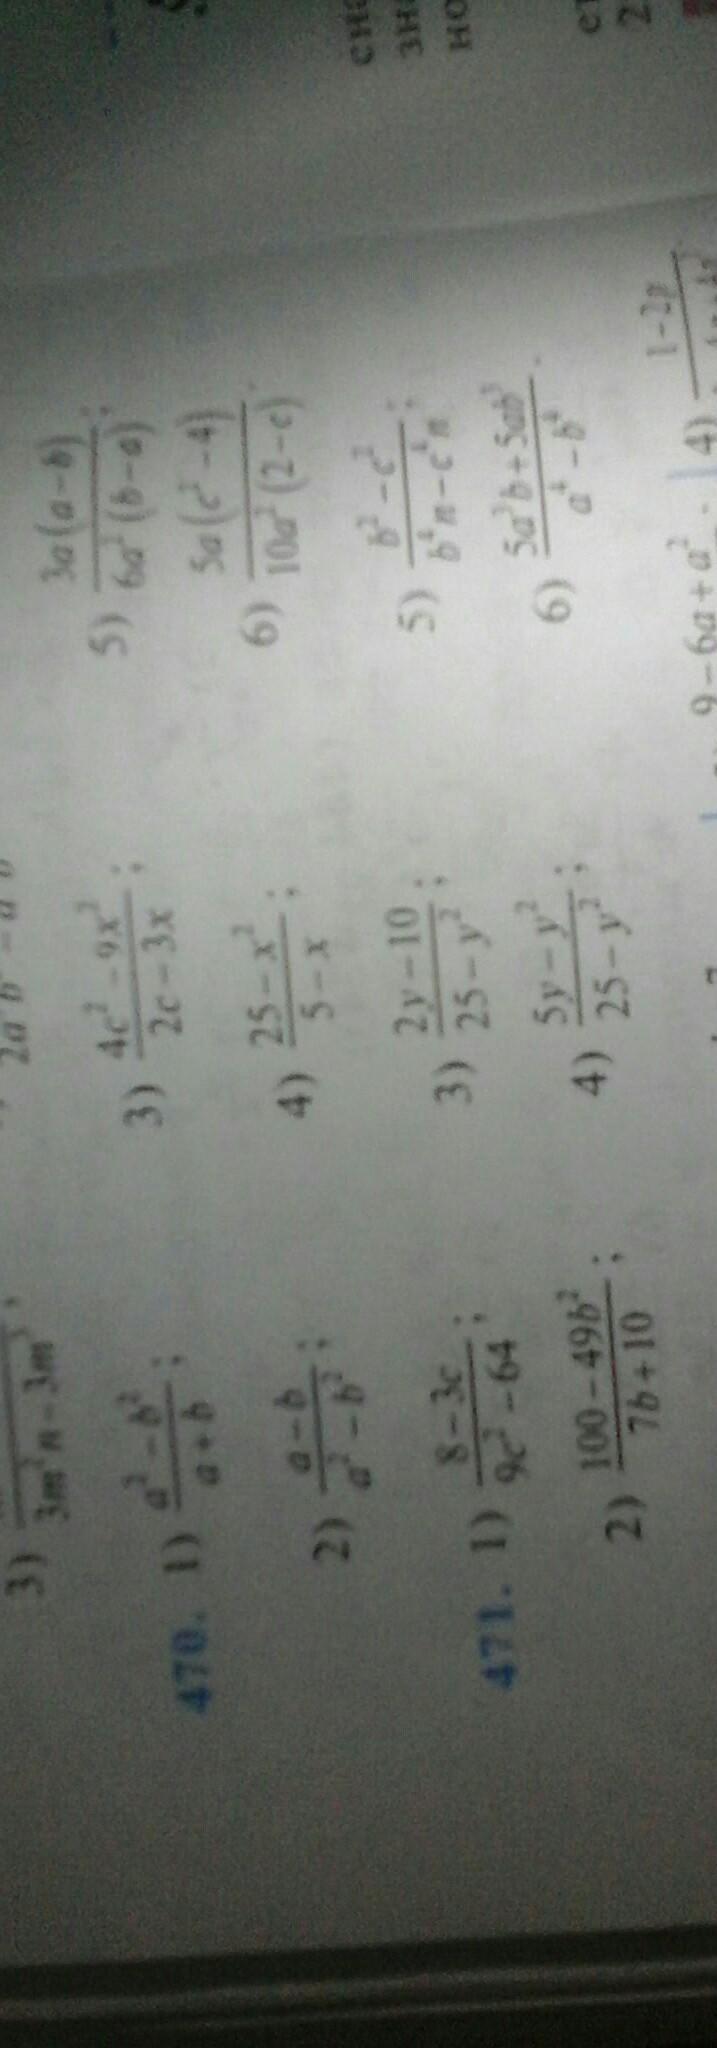 3) 3m²n - 3m³;
470. 1) (a² - b²)/(a + b); 3) (4c² - 9x²)/(2c - 3x); 5) 3a(a - b)/6a²(b - a);
2) (a - b)/(a² - b²); 4) (25 - x²)/(5 - x); 6) 5a(c² - 4)/10a²(2 - c).
471. 1) (8 - 3c)/(9c² - 64); 3) (2y - 10)/(25 - y²); 5) (b² - c²)/(b⁴n - c⁴n);
2) (100 - 49b²)/(7b + 10); 4) (5y - y²)/(25 - y²); 6) (5a³b + 5ab³)/(a⁴ - b⁴).
9 - 6a + a² 4) 1 - 2p